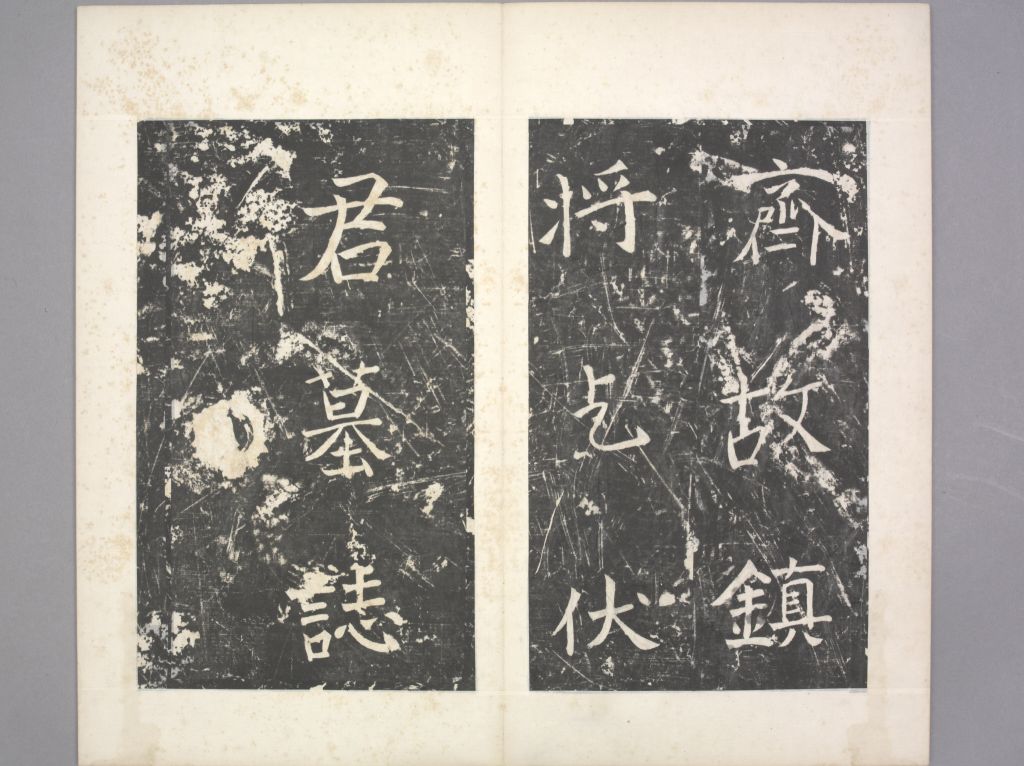 齊故鎮
将乞伏
君墓誌